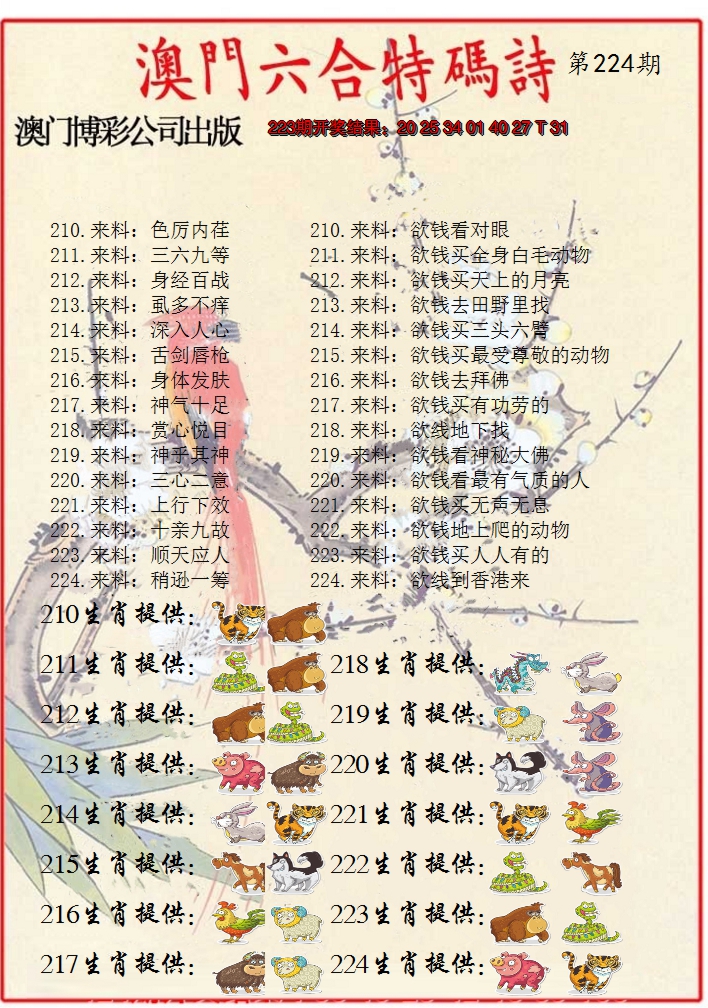 澳門六合特碼詩 第224期
澳门博彩公司出版 223期开奖结果：20 25 34 01 40 27 T 31
210.来料：色厉内荏 210.来料：欲钱看对眼
211.来料：三六九等 211.来料：欲钱买全身白毛动物
212.来料：身经百战 212.来料：欲钱买天上的月亮
213.来料：虱多不痒 213.来料：欲钱去田野里找
214.来料：深入人心 214.来料：欲钱买三头六臂
215.来料：舌剑唇枪 215.来料：欲钱买最受尊敬的动物
216.来料：身体发肤 216.来料：欲钱去拜佛
217.来料：神气十足 217.来料：欲钱买有功劳的
218.来料：赏心悦目 218.来料：欲线地下找
219.来料：神乎其神 219.来料：欲钱看神秘大佛
220.来料：三心二意 220.来料：欲钱看最有气质的人
221.来料：上行下效 221.来料：欲钱买无声无息
222.来料：十亲九故 222.来料：欲钱地上爬的动物
223.来料：顺天应人 223.来料：欲钱买人人有的
224.来料：稍逊一筹 224.来料：欲线到香港来
210生肖提供：
211生肖提供： 218生肖提供：
212生肖提供： 219生肖提供：
213生肖提供： 220生肖提供：
214生肖提供： 221生肖提供：
215生肖提供： 222生肖提供：
216生肖提供： 223生肖提供：
217生肖提供： 224生肖提供：